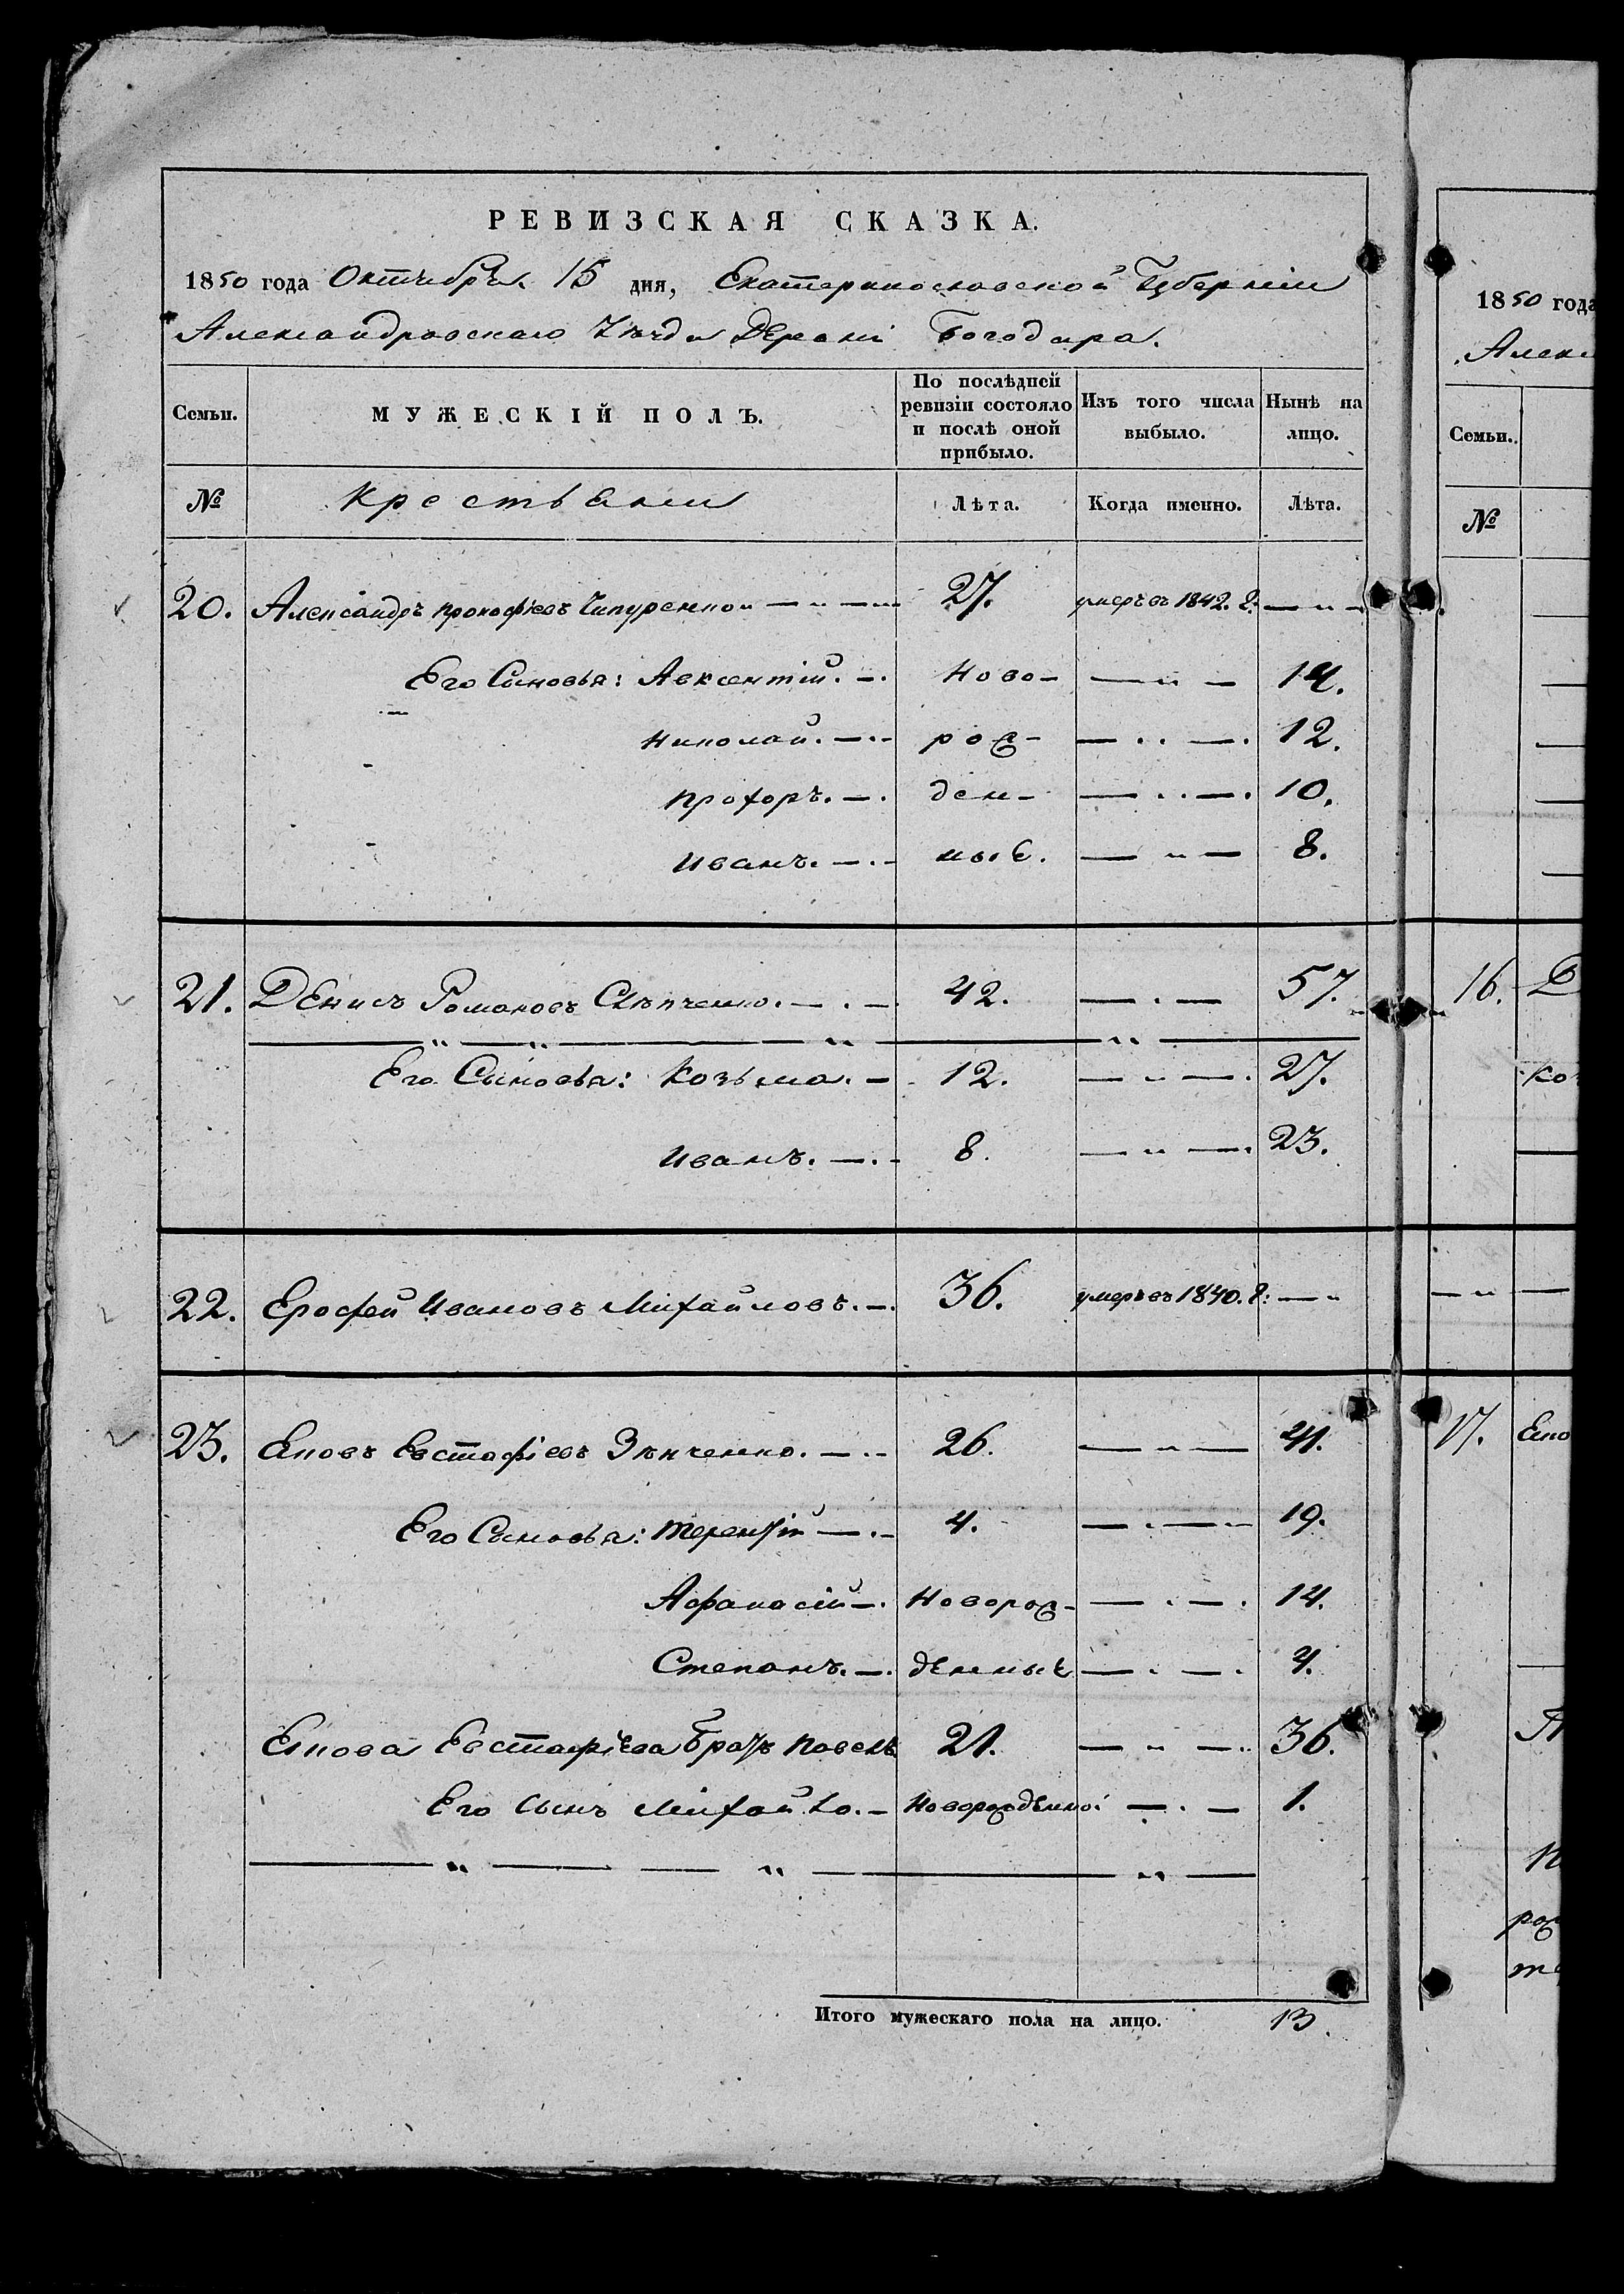 РЕВИЗСКАЯ СКАЗКА.
1850 года Октября 15 дня, Екатеринославской Губерніи
Александровскаго Уѣзда Деревни Богодара.
Семьи. МУЖЕСКІЙ ПОЛЪ. По послѣдней ревизіи состояло и послѣ оной прибыло. Изъ того числа выбыло. Нынѣ на лицо.
№ Крестьяни Лѣта. Когда именно. Лѣта.
20. Александръ Прокофіевъ Чипуренко 27. умеръ въ 1842. г.
Его Сыновья: Авксентій. Ново- 14.
Николай. рож- 12.
Прохоръ. ден- 10.
Иванъ. ные. 8.
21. Денисъ Романовъ Слѣпченко. 42. 57.
Его Сыновья: Козьма. 12. 27.
Иванъ. 8. 23.
22. Ерофей Ивановъ Михайловъ. 36. умеръ въ 1840. г.
23. Евстафіевъ Зѣнченко. 26. 41.
Его Сыновья: Терентій 4. 19.
Афанасій Новорож- 14.
Степанъ. денные 4.
Евстафіева Братъ Павелъ 21. 36.
Его Сынъ Михайло. Новорожденной 1.
Итого мужескаго пола на лицо. 13.
1850 года
Семьи.
№
16.
17.